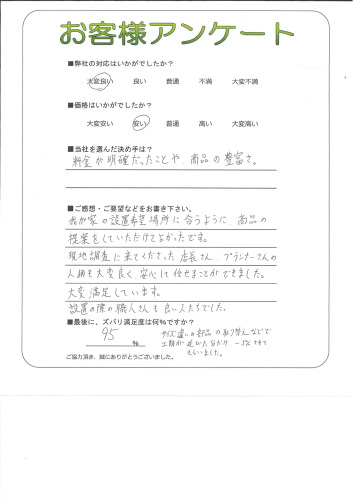 お客様アンケート
■弊社の対応はいかがでしたか？
大変良い 良い 普通 不満 大変不満
■価格はいかがでしたか？
大変安い 安い 普通 高い 大変高い
■当社を選んだ決め手は？
料金が明確だったことや、商品の豊富さ。
■ご感想・ご要望などをお書き下さい。
我が家の設置希望場所に合うように、商品の
提案をしていただけてよかったです。
現地調査に来てくださった店長さん、プランナーさんの
人柄も大変良く、安心して任せることができました。
大変満足しています。
設置の際の職人さんも良い人たちでした。
■最後に、ズバリ満足度は何%ですか？
95 %
サイズ違いの部品の取り替えなどで
工期が延びた分だけ －5%させて
もらいました。
ご協力頂き、誠にありがとうございました。